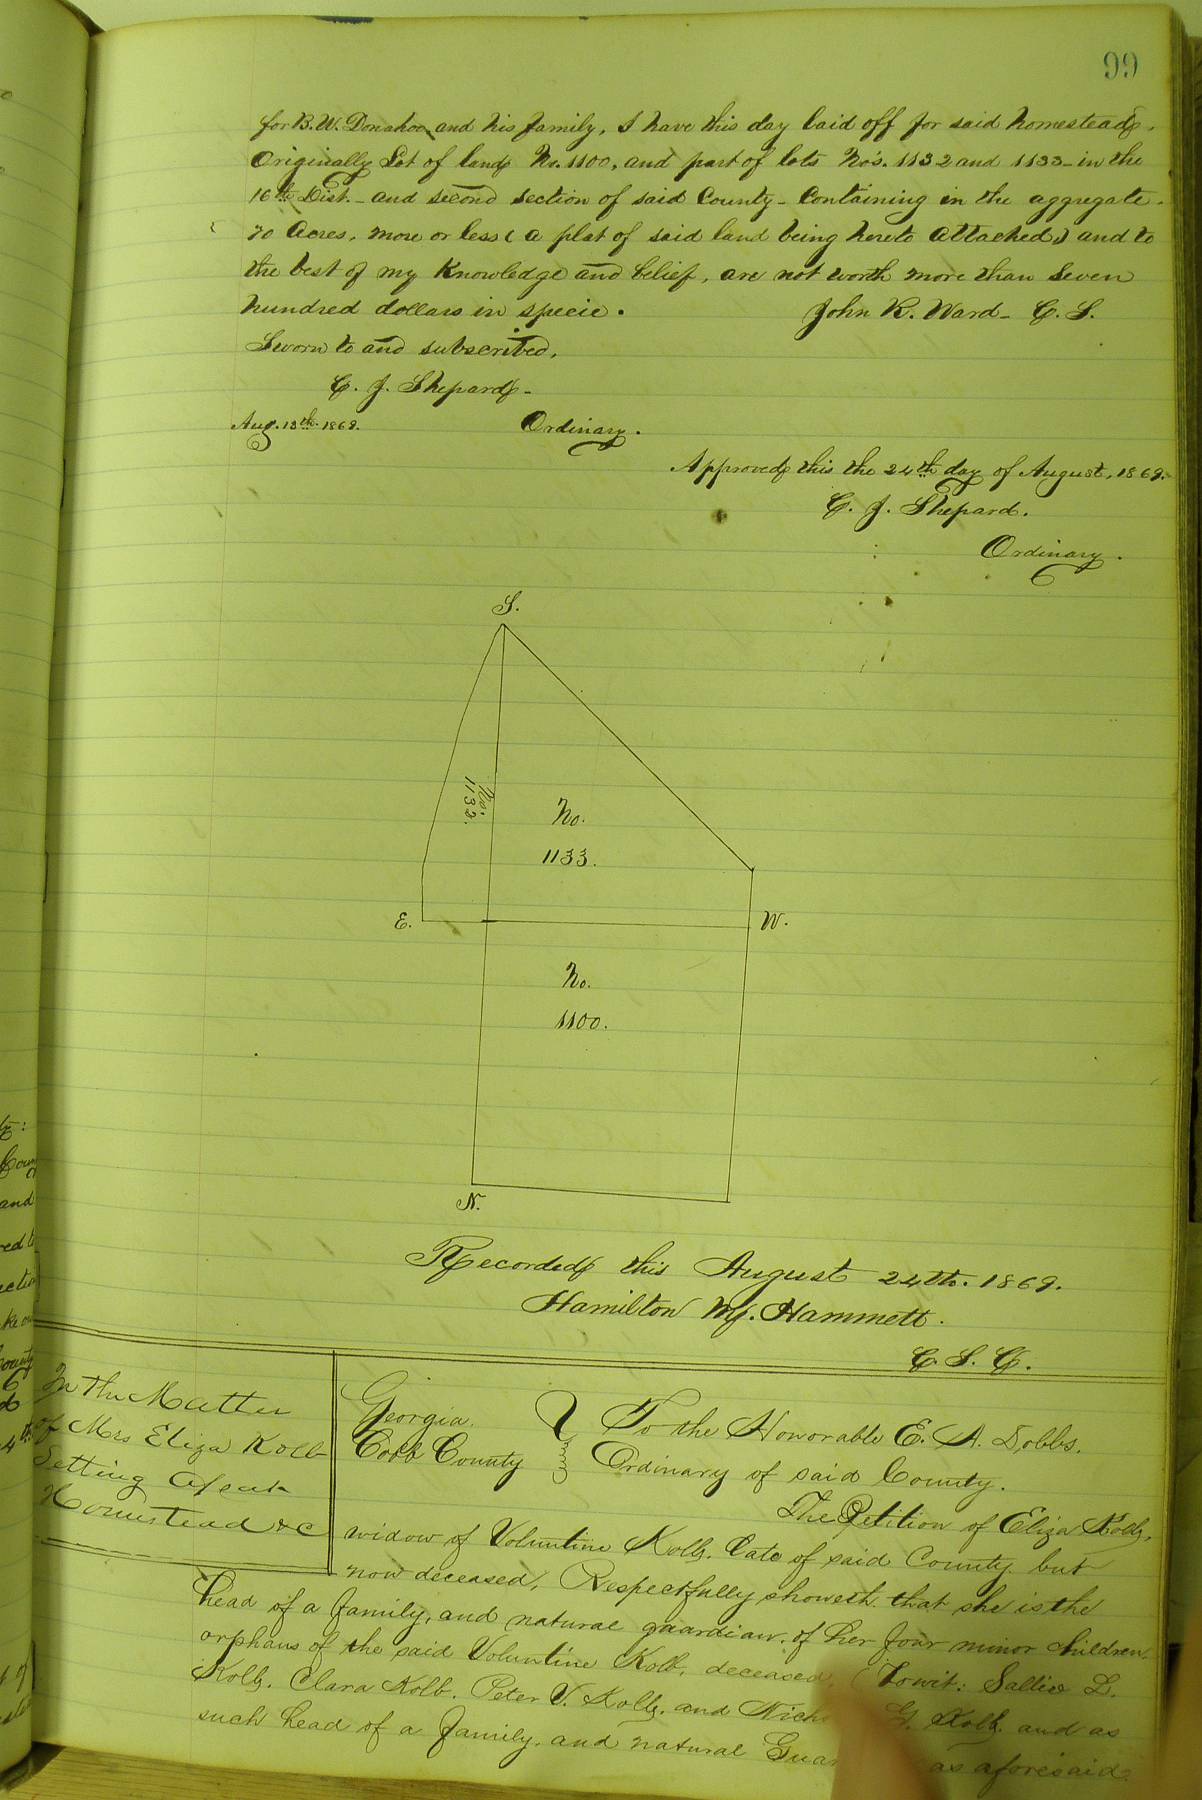 99
for B. W. Donahoo, and his family, I have this day laid off for said homestead,
Originally Lot of land No. 1100, and part of lots No's. 1132 and 1133 - in the
16th Dist. - and second section of said County - Containing in the aggregate
70 Acres, more or less ( a plat of said land being hereto attached,) and to
the best of my Knowledge and belief, are not worth more than Seven
hundred dollars in specie.
John R. Ward - C. S.
Sworn to and subscribed,
C. J. Shepard -
Aug. 13th 1869. Ordinary.
Approved this the 24th day of August, 1869.
C. J. Shepard.
Ordinary.
S.
No.
1132.
No.
1133.
E.
W.
No.
1100.
N.
Recorded this August 24th. 1869.
Hamilton M. Hammett.
C. S. C.
In the Matter
of Mrs Eliza Kolb
Setting Apart
Homestead &c
Georgia
Cobb County
To the Honorable E. A. Dobbs.
Ordinary of said County.
The Petition of Eliza Kolb,
widow of Voluntine Kolb. Late of said County but
now deceased, Respectfully showeth that she is the
head of a family, and natural guardian. of her four minor children,
orphans of the said Voluntine Kolb, deceased, (Towit: Sallie L.
Kolb. Clara Kolb. Peter V. Kolb. and G. Kolb. and as
such head of a family. and natural as aforesaid